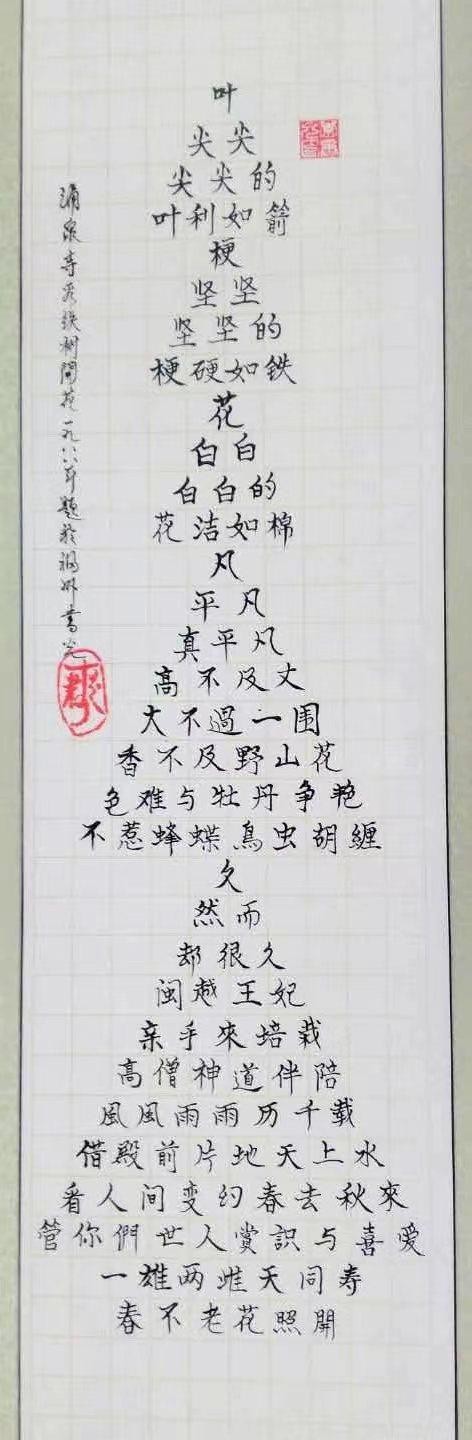 叶
尖尖
尖尖的
叶利如箭
梗
坚坚
坚坚的
梗硬如鉄
花
白白
白白的
花洁如棉
凡
平凡
真平凡
高不及丈
大不過一围
香不及野山花
色难与牡丹争艳
不惹蜂蝶鳥虫胡纏
久
然而
却很久
闽越王妃
亲手來培栽
高僧神道伴陪
風風雨雨历千载
借殿前片地天上水
看人间变幻春去秋來
管你們世人賞識与喜爱
一雄两雌天同寿
春不老花照開
涌泉寺观鉄树開花一九八八年題於福州書